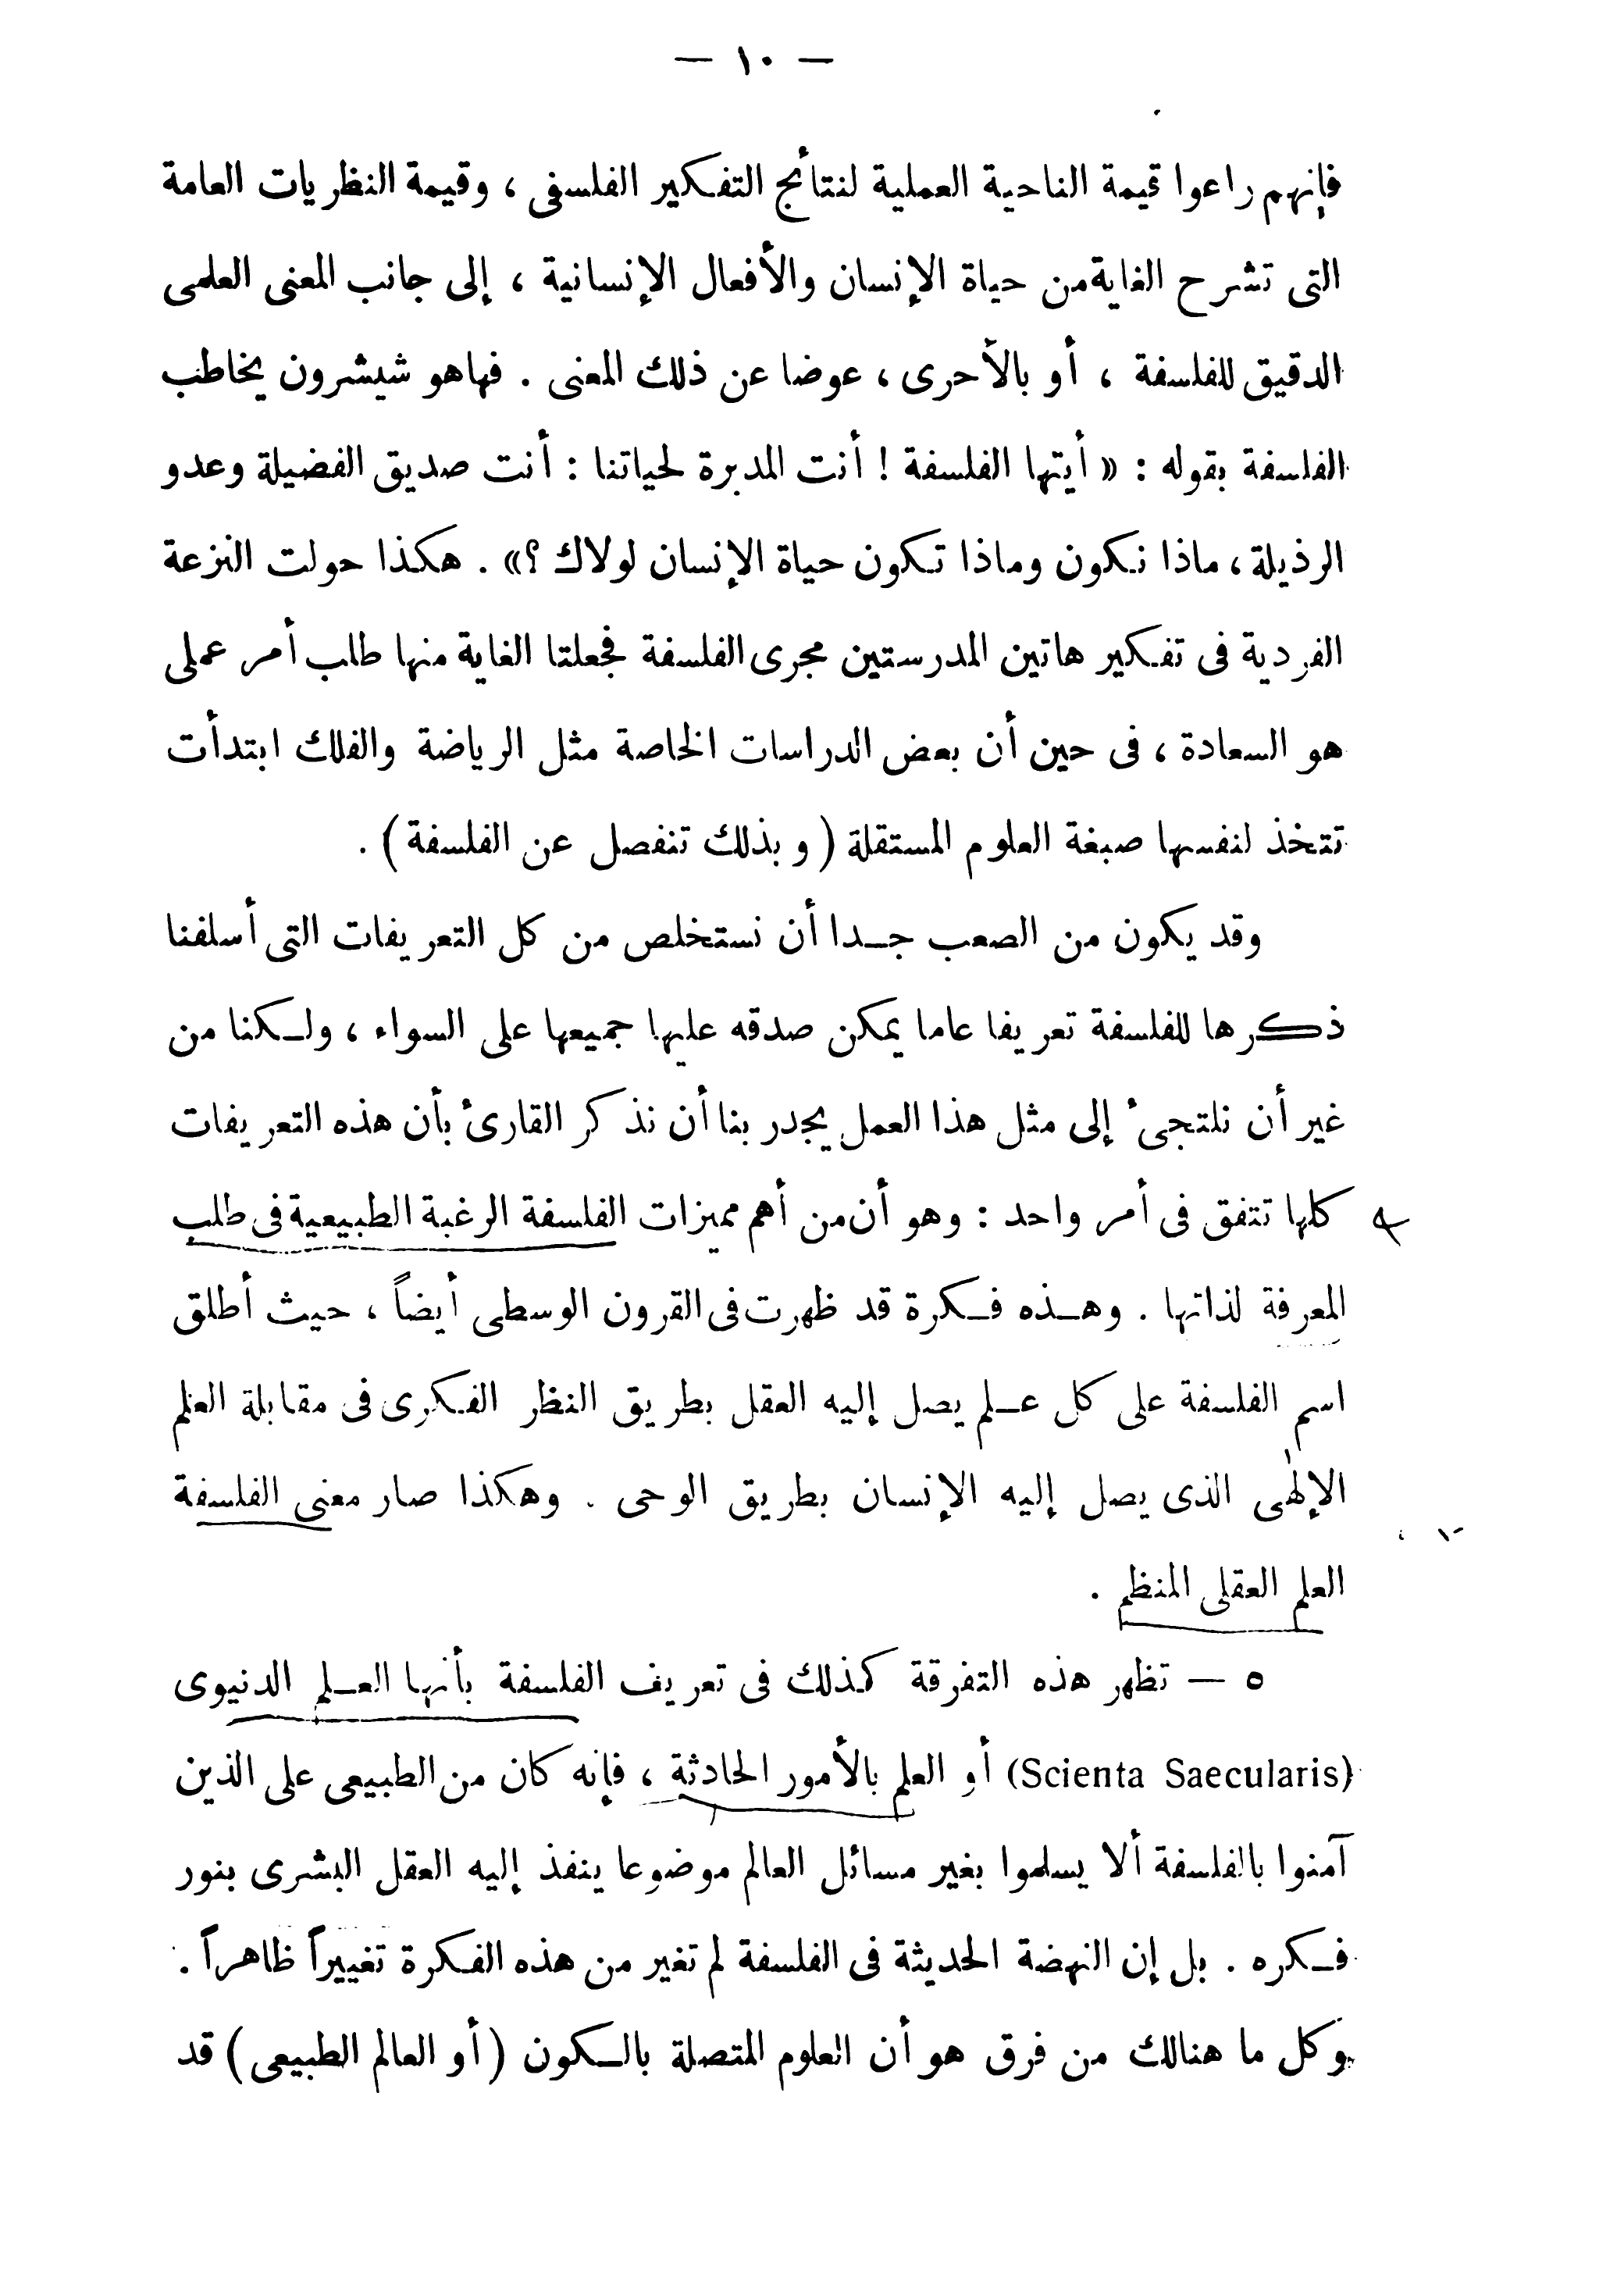 — ١٠ —
فإنهم راعوا قيمة الناحية العملية لنتائج التفكير الفلسفى ، وقيمة النظريات العامة
التى تشرح الغاية من حياة الإنسان والأفعال الإنسانية ، إلى جانب المعنى العلمى
الدقيق للفلسفة ، أو بالأحرى ، عوضا عن ذلك المعنى . فهاهو شيشرون يخاطب
الفلسفة بقوله : « أيتها الفلسفة ! أنت المدبرة لحياتنا : أنت صديق الفضيلة وعدو
الرذيلة ، ماذا نكون وماذا تكون حياة الإنسان لولاك ؟» . هكذا حولت النزعة
الفردية فى تفكير هاتين المدرستين مجرى الفلسفة فجعلتا الغاية منها طلب أمر عملى
هو السعادة ، فى حين أن بعض الدراسات الخاصة مثل الرياضة والفلك ابتدأت
تتخذ لنفسها صبغة العلوم المستقلة ( وبذلك تنفصل عن الفلسفة ) .
وقد يكون من الصعب جدا أن نستخلص من كل التعريفات التى أسلفنا
ذكرها للفلسفة تعريفا عاما يمكن صدقه عليها جميعها على السواء ، ولكننا من
غير أن نلتجىء إلى مثل هذا العمل يجدر بنا أن نذكر القارئ بأن هذه التعريفات
كلها تتفق فى أمر واحد : وهو أن من أهم مميزات الفلسفة الرغبة الطبيعية فى طلب
المعرفة لذاتها . وهذه فكرة قد ظهرت فى القرون الوسطى أيضاً ، حيث أطلق
اسم الفلسفة على كل علم يصل إليه العقل بطريق النظر الفكرى فى مقابلة العلم
الإلهى الذى يصل إليه الإنسان بطريق الوحى . وهكذا صار معنى الفلسفة
العلم العقلى المنظم .
٥ — تظهر هذه التفرقة كذلك فى تعريف الفلسفة بأنها العلم الدنيوى
(Scienta Saecularis) أو العلم بالأمور الحادثة ، فإنه كان من الطبيعى على الذين
آمنوا بالفلسفة ألا يسلموا بغير مسائل العالم موضوعا ينفذ إليه العقل البشرى بنور
فكره . بل إن النهضة الحديثة فى الفلسفة لم تغير من هذه الفكرة تغييراً ظاهراً .
وكل ما هنالك من فرق هو أن العلوم المتصلة بالكون ( أو العالم الطبيعى ) قد